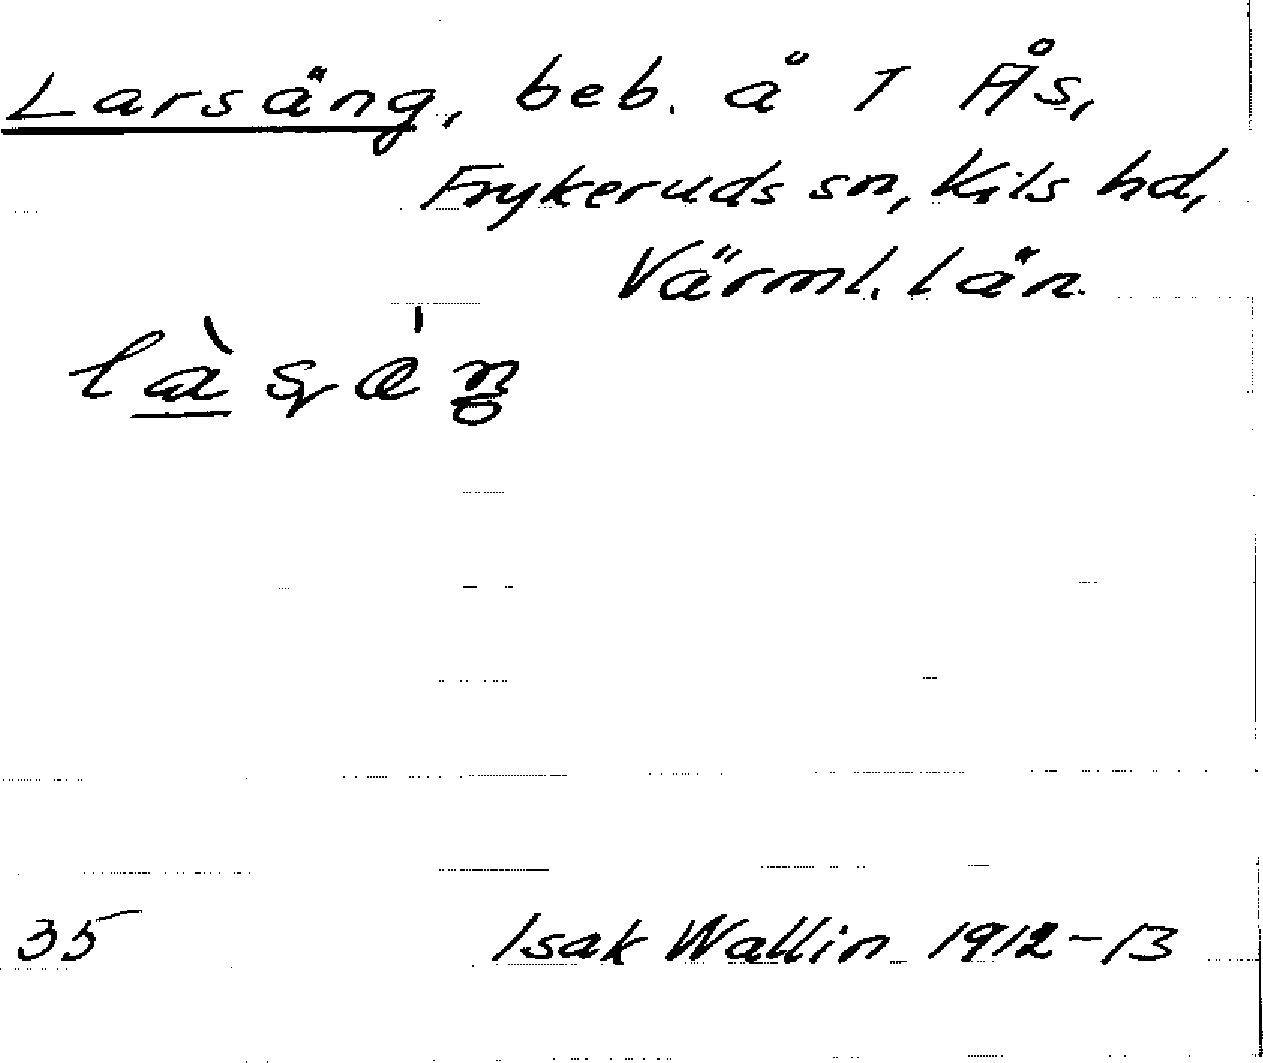 Larsäng, beb. å 1 Ås,
Frykeruds sn, Kils hd,
Värml. län.
35 Isak Wallin 1912-13